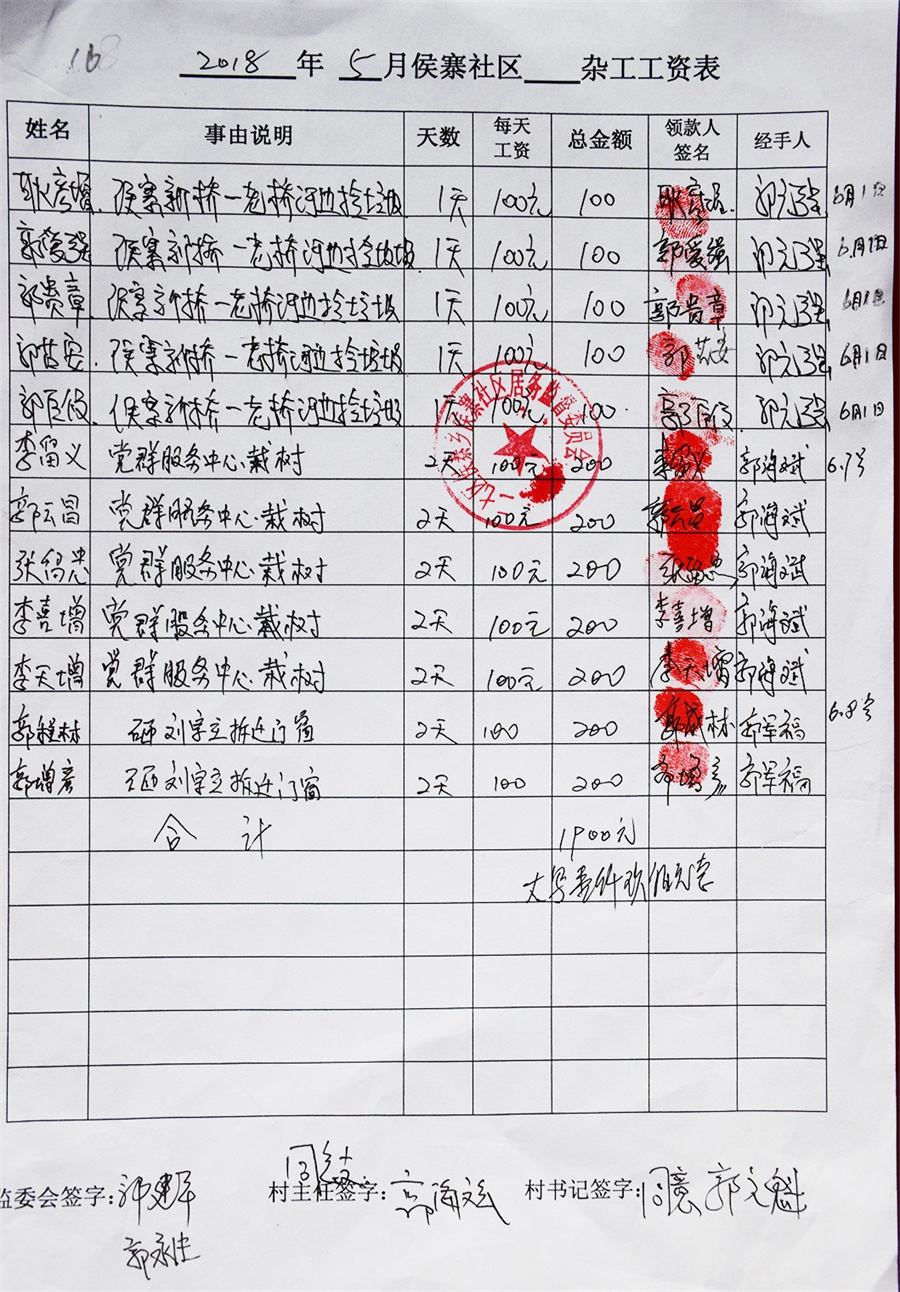 168
2018 年 5 月侯寨社区 杂工工资表
姓名 事由说明 天数 每天工资 总金额 领款人签名 经手人
侯寨新桥一老桥河边捡垃圾 1天 100元 100 6月1日
郭爱强 侯寨新桥一老桥河边捡垃圾 1天 100元 100 郭爱强 6月1日
郭贵章 侯寨新桥一老桥河边捡垃圾 1天 100元 100 郭贵章 6月1日
侯寨新桥一老桥河边捡垃圾 1天 100元 100 6月1日
侯寨新桥一老桥河边捡垃圾 1天 100元 100 6月1日
李留义 党群服务中心栽树 2天 100元 200 李留义 郭海斌 6.7号
郭云昌 党群服务中心栽树 2天 100元 200 郭云昌 郭海斌
党群服务中心栽树 2天 100元 200 郭海斌
李喜增 党群服务中心栽树 2天 100元 200 李喜增 郭海斌
李天增 党群服务中心栽树 2天 100元 200 李天增 郭海斌
砸刘字立拆迁门窗 2天 100 200 郭军福 6.8号
郭增彦 砸刘字立拆迁门窗 2天 100 200 郭增彦 郭军福
合计 1900元
大写壹仟玖佰元整
二七区侯寨乡侯寨社区居务监督委员会
同意
监委会签字: 郭建军 村主任签字: 郭海斌 村书记签字: 同意 郭文魁
郭永忠